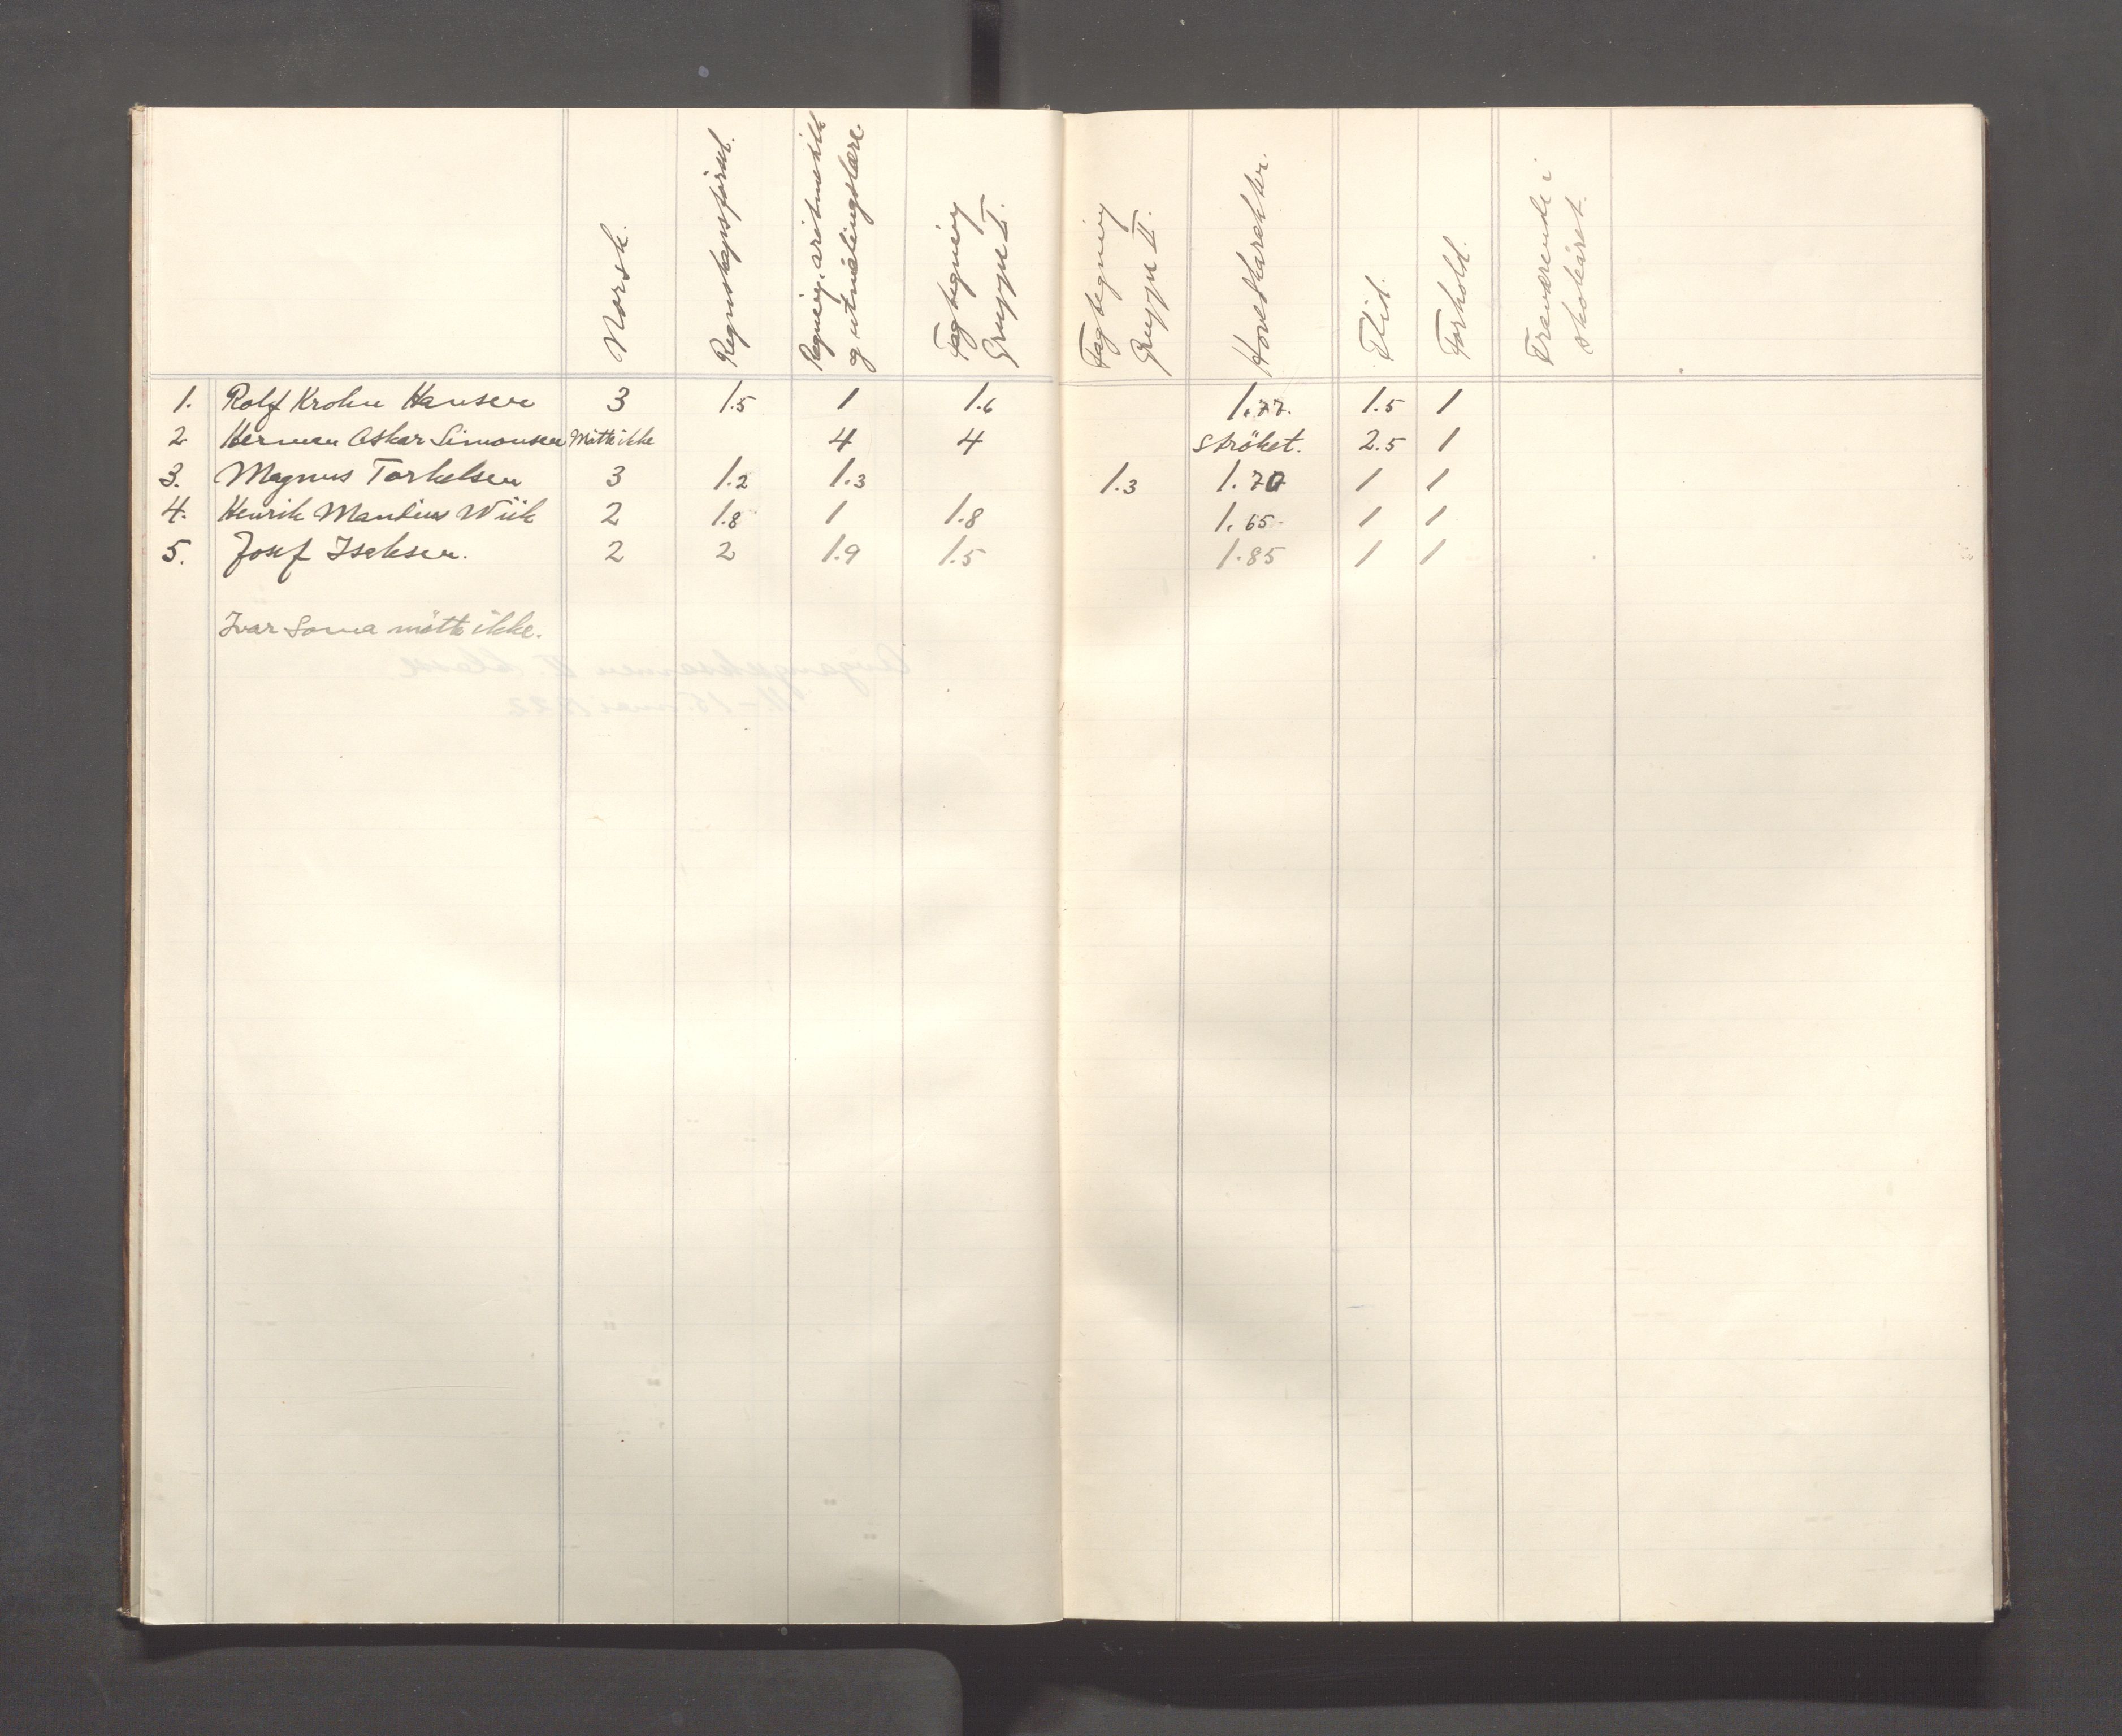 Norsk.
Regnskapsførsel.
Regning, aritmetikk
og utmålingslære.
Fagtegning
Gruppe I.
Fagtegning
Gruppe II.
Hovedkarakter.
Flid.
Forhold.
Fraværende i
skoleåret.
1. Rolf Krohn Hansen 3 1.5 1 1.6 1.77. 1.5 1
2 Herman Oskar Simonsen Mötte ikke 4 4 Ströket. 2.5 1
3. Magnus Torkelsen 3 1.2 1.3 1.3 1.70 1 1
4. Henrik Mandius Wiik 2 1.8 1 1.8 1.65 1 1
5. Josef Isaksen. 2 2 1.9 1.5 1.85 1 1
Ivar Soma mötte ikke.